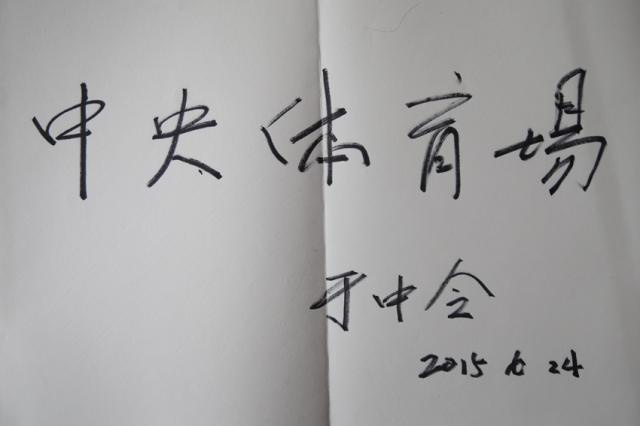 中央体育場
于中令
2015 6 24